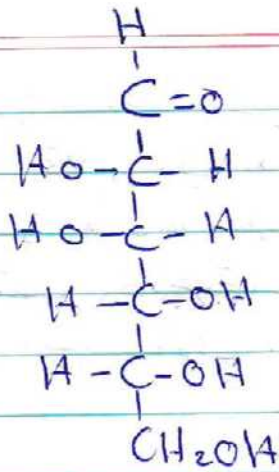 H
C=O
HO-C-H
HO-C-H
H-C-OH
H-C-OH
CH₂OH